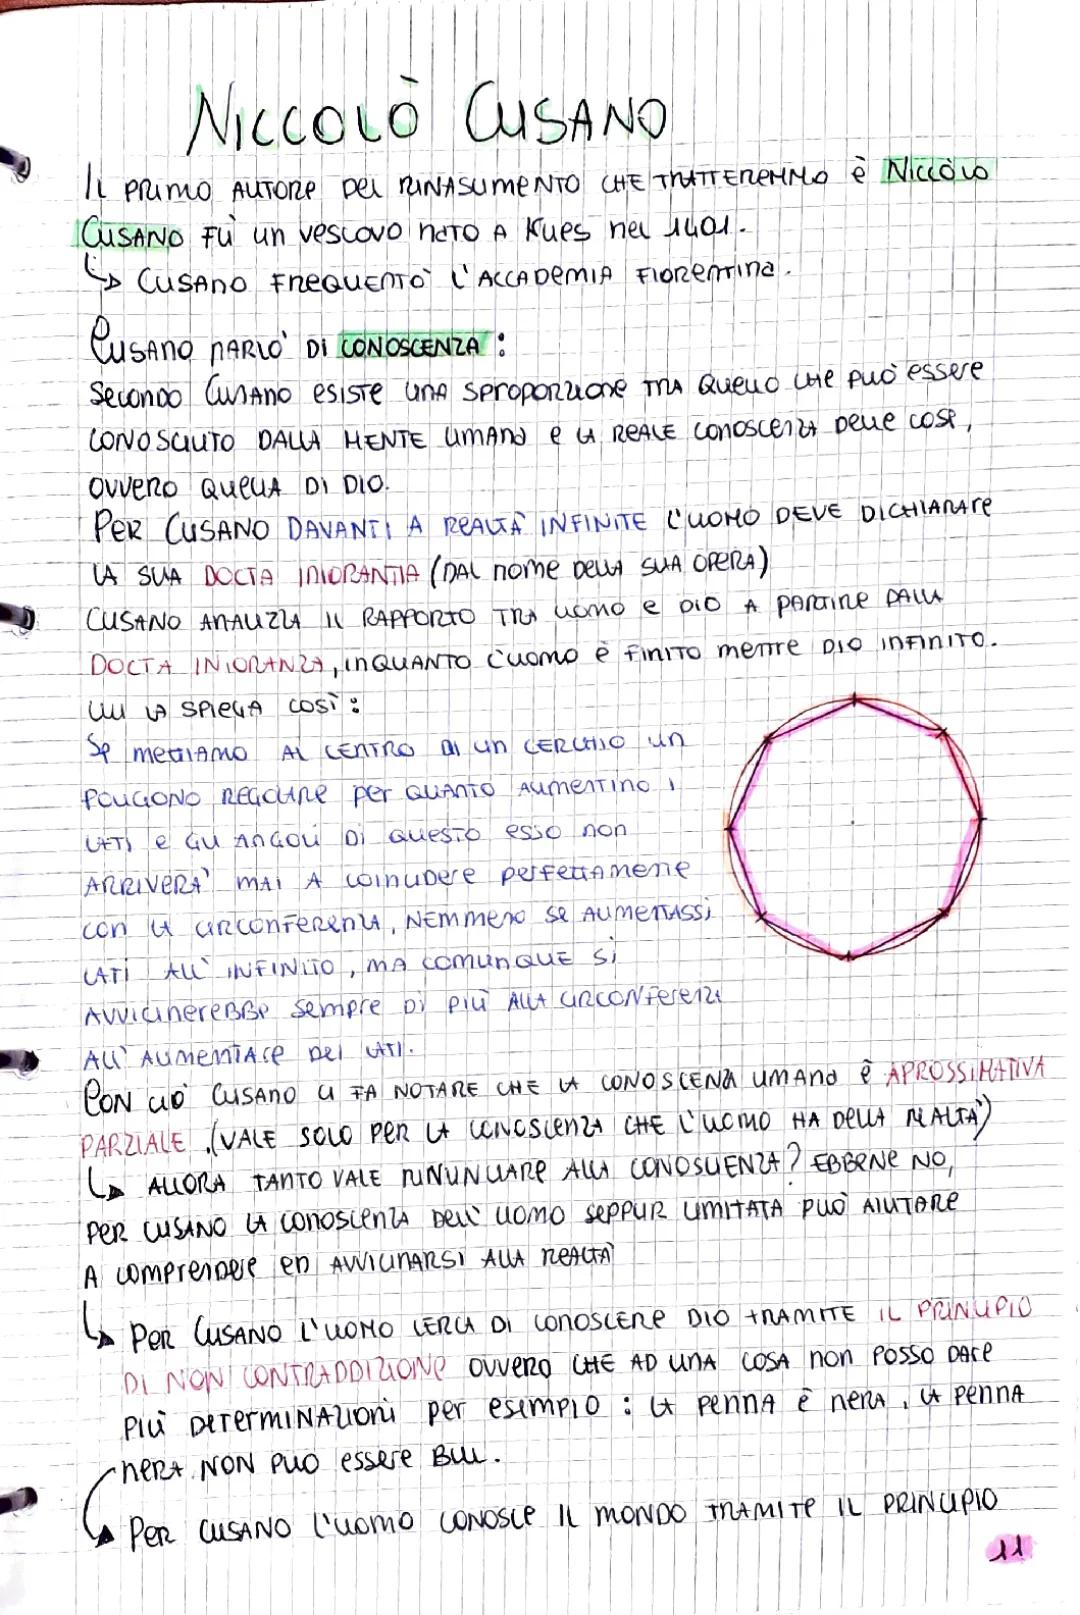 NICCOLÒ CUSANO
IL PRIMO AUTORE DEL RINASCIMENTO CHE TRATTEREMMO È NICCÒLO
CUSANO FÙ UN VESCOVO NATO A KUES NEL 1401.
↳ CUSANO FREQUENTÒ L'ACCADEMIA FIORENTINA.
CUSANO PARLÒ DI CONOSCENZA:
SECONDO CUSANO ESISTE UNA SPROPORZIONE TRA QUELLO CHE PUÒ ESSERE
CONOSCIUTO DALLA MENTE UMANA E LA REALE CONOSCENZA DELLE COSE,
OVVERO QUELLA DI DIO.
PER CUSANO DAVANTI A REALTÀ INFINITE L'UOMO DEVE DICHIARARE
LA SUA DOCTA INIORANTIA (DAL NOME DELLA SUA OPERA)
CUSANO ANALIZZA IL RAPPORTO TRA UOMO E DIO A PARTIRE DALLA
DOCTA INIORANZA, INQUANTO L'UOMO È FINITO MENTRE DIO INFINITO.
LUI LA SPIEGA COSÌ:
SE METTIAMO AL CENTRO DI UN CERCHIO UN
POLIGONO REGOLARE PER QUANTO AUMENTINO I
LATI E GLI ANGOLI DI QUESTO ESSO NON
ARRIVERÀ MAI A COINCIDERE PERFETTAMENTE
CON LA CIRCONFERENZA, NEMMENO SE AUMENTASSI
LATI ALL'INFINITO, MA COMUNQUE SI
AVVICINEREBBE SEMPRE DI PIÙ ALLA CIRCONFERENZA
ALL'AUMENTARE DEI LATI.
CON CIÒ CUSANO CI FA NOTARE CHE LA CONOSCENZA UMANA È APROSSIMATIVA
PARZIALE. (VALE SOLO PER LA CONOSCENZA CHE L'UOMO HA DELLA REALTÀ)
↳ ALLORA TANTO VALE RINUNCIARE ALLA CONOSCENZA? EBBENE NO,
PER CUSANO LA CONOSCENZA DELL'UOMO SEPPUR LIMITATA PUÒ AIUTARE
A COMPRENDERE ED AVVICINARSI ALLA REALTÀ
↳ PER CUSANO L'UOMO CERCA DI CONOSCERE DIO TRAMITE IL PRINCIPIO
DI NON CONTRADDIZIONE OVVERO CHE AD UNA COSA NON POSSO DARE
PIÙ DETERMINAZIONI PER ESEMPIO: LA PENNA È NERA, LA PENNA
NERA NON PUÒ ESSERE BLU.
↳ PER CUSANO L'UOMO CONOSCE IL MONDO TRAMITE IL PRINCIPIO
11